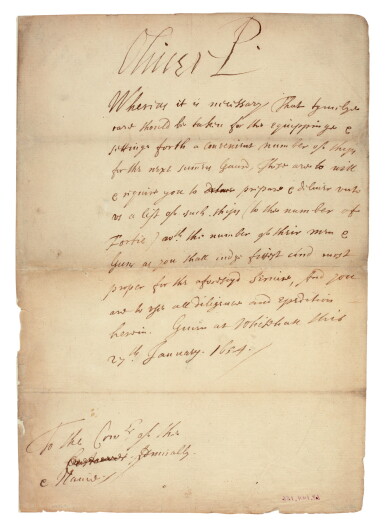 Oliver P.
Whereas it is necessary That tymelye
care should be taken for the equippinge &
settinge forth a convenient number of ships
for the next Guard. These are to will
& require you to prepare & deliver unto
us a list of such ships (to the number of
Fortie) wth the number of their men &
Guns as you shall judge fittest and most
proper for the aforesayd Service, And you
are to use all diligence and expedition
herein. Given at Whitehall this
27th January. 1654.
To the Comrs of the
Admiralty
& Navie